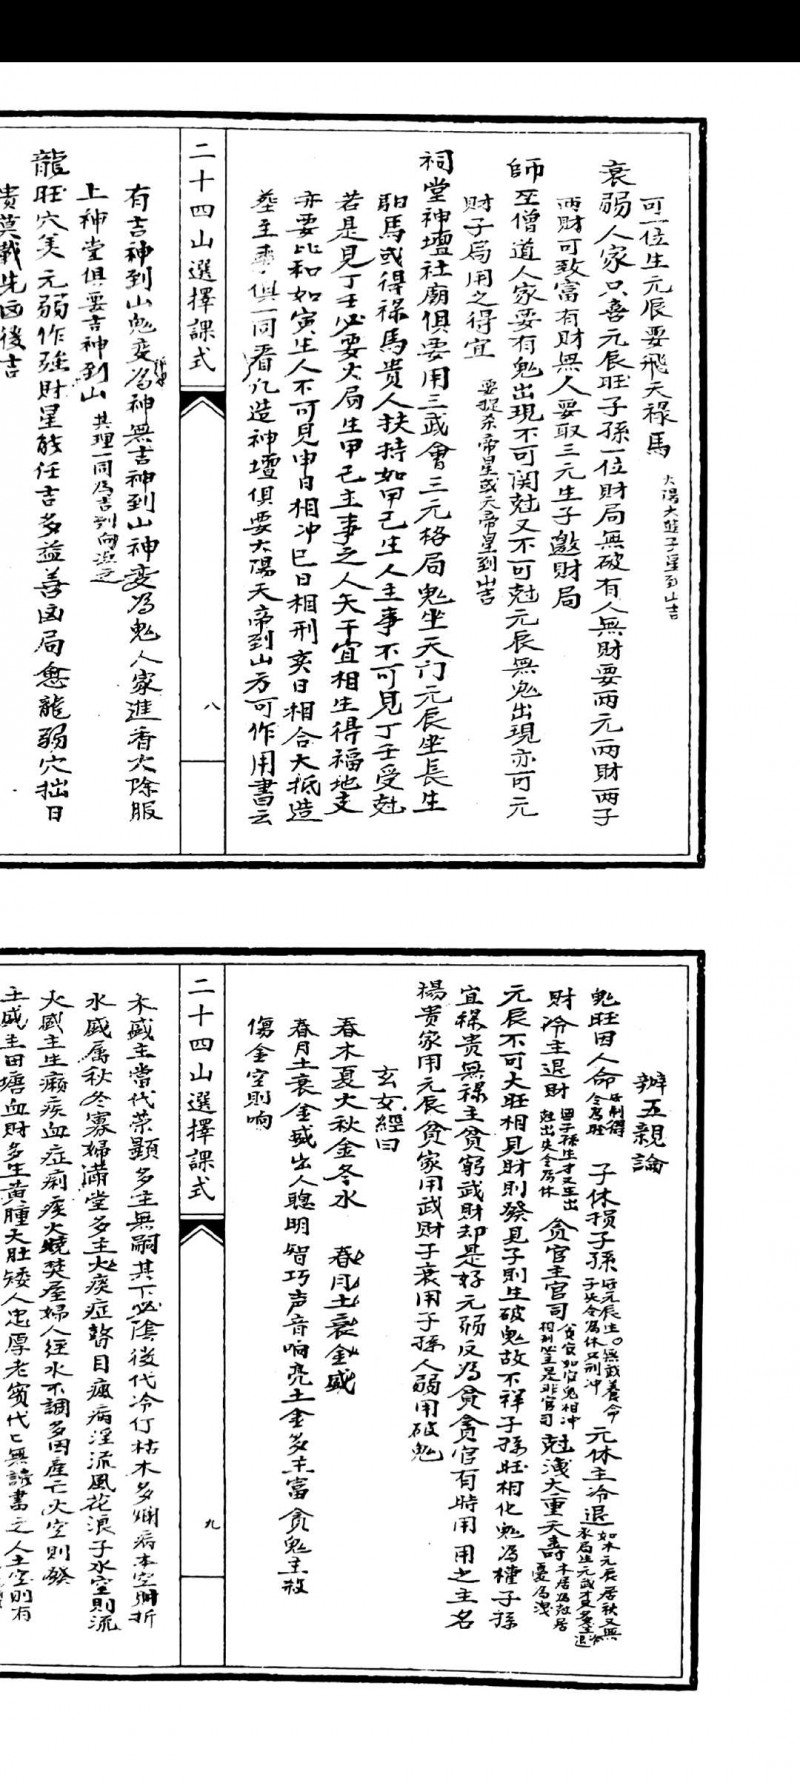 可一位生元辰要飛天祿馬
太陽太陰子星到山吉
衰弱人家只喜元辰旺子孫一位財局無破有人無財要兩元兩財兩子
兩財可致富有財無人要取三元生子邀財局
師巫僧道人家要有鬼出現不可関尅又不可尅元辰無鬼出現亦可元
財子為用之得宜
要捉杀帝星或天帝皇到山吉
祠堂神壇社廟俱要用三武會三元格局鬼坐天门元辰坐長生
馬或得祿馬貴人扶持如甲己生人主事不可見丁壬受尅
若是見丁壬必要火局生甲己主事之人天干宜相生得福地支
亦要比和如寅生人不可見申日相冲巳日相刑亥日相合大抵造
塋主事俱一同看凢造神壇俱要太陽天帝到山方可作用書云
二十四山選擇課式
八
有吉神到山鬼变為神無吉神到山神变為鬼人家進香火除服
上神堂俱要吉神到山
其理一同為吉到向次之
龍旺穴美元弱作強財星能任吉多益善凶局怠龍弱穴拙日
貴莫載先凶後吉
辦五親論
鬼旺因人命
子休損子孫
元休主冷退
財冷主退財
貪官主官司
尅洩太重夭壽
元辰不可大旺相見財則發見子則生破鬼故不祥子孫旺相化鬼為權子孫
宜祿貴無祿主貧窮武財却是好元弱反為貧貪官有時用用之主名
楊貴家用元辰貧家用武財子衰用子孫人弱用破鬼
玄女經曰
春木夏火秋金冬水
春月土衰金盛
春月土衰金盛出人聰明智巧声音响亮土金多主富貪鬼主殺
傷金空則响
二十四山選擇課式
九
木盛主當代荣顯多主無嗣其下必陰後代冷仃枯木多爛病木空則折
水盛属秋冬寡婦滿堂多主火痰症瞽目瘋病淫流風花浪子水空則流
火盛主生癞疾血症痢疾火燒焚屋婦人經水不調多因產亡火空則發
土盛主田塘血財多生黃腫大肚矮人忠厚老實代匕無讀書之人土空則有